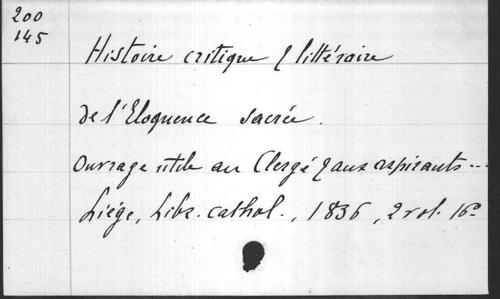 200
145
Histoire critique & littéraire
de l'Eloquence sacrée.
Ouvrage utile au Clergé & aux aspirants...
Liége, Libr. cathol., 1836, 2 vol. 16º